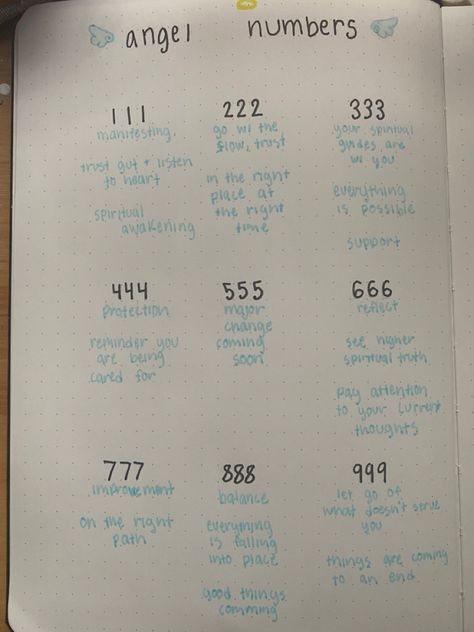 angel numbers
111
manifesting,
trust gut + listen
to heart
spiritual
awakening
222
go w/ the
flow, trust
in the right
place at
the right
time
333
your spiritual
guides are
w/ you
everything
is possible
support
444
protection
reminder you
are being
cared for
555
major
change
coming
soon
666
reflect
see higher
spiritual truth
pay attention
to your current
thoughts
777
improvement
on the right
path
888
balance
everything
is falling
into place
good things
comming
999
let go of
what doesn't serve
you
things are coming
to an end